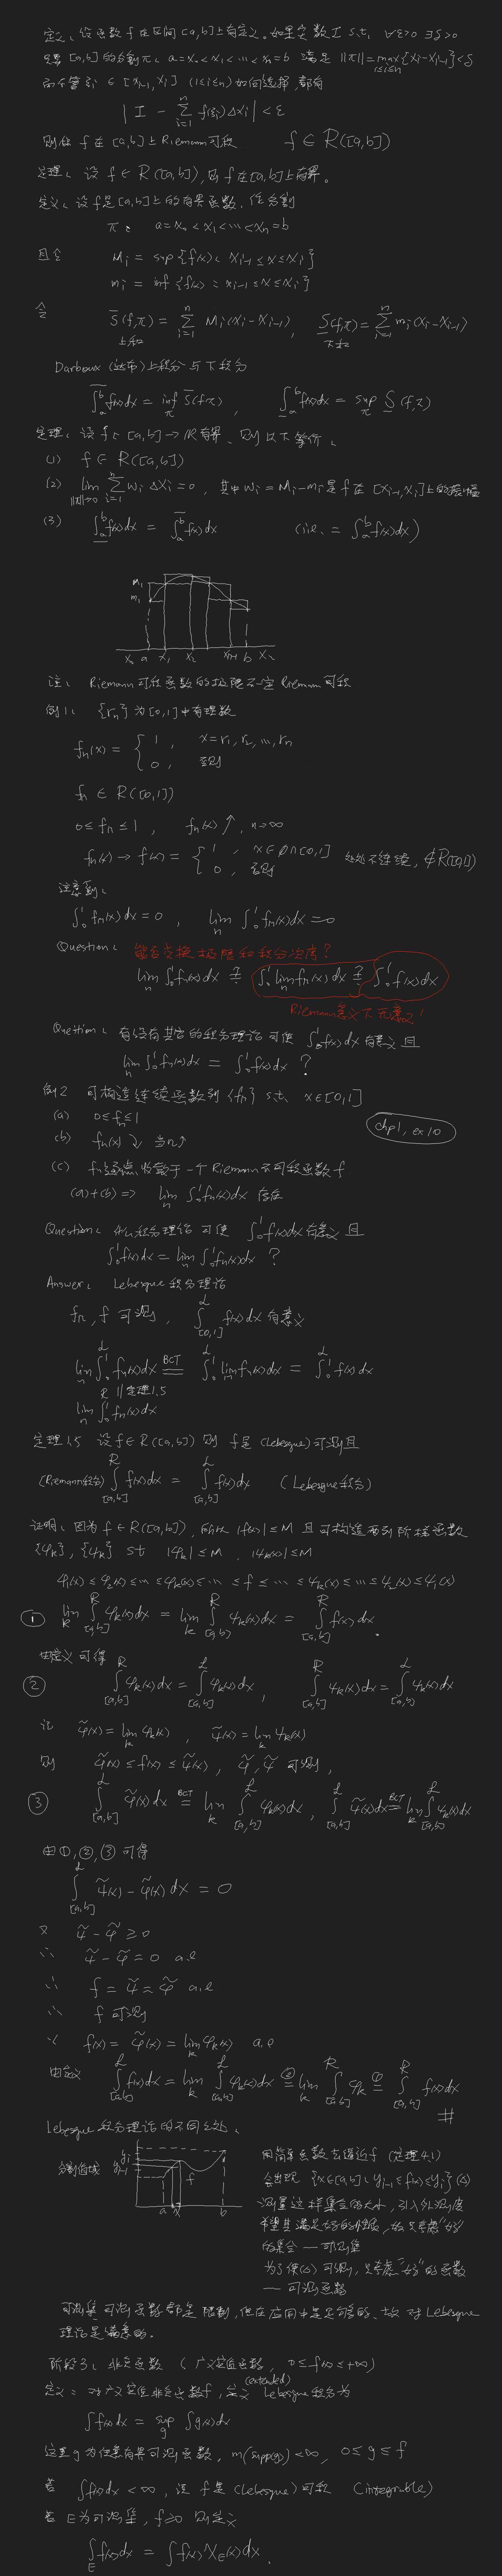 定义、设函数 f 在区间 [a,b] 上有定义。如果实数 I s.t. ∀ε>0 ∃δ>0
只要 [a,b] 的分割 π: a=x₀<x₁<…<xₙ=b 满足 ||π||=max_{1≤i≤n}{xᵢ-xᵢ₋₁}<δ
而不管 ξᵢ ∈ [xᵢ₋₁, xᵢ] (1≤i≤n) 如何选择, 都有
| I - Σ_{i=1}^n f(ξᵢ)Δxᵢ | < ε
则称 f 在 [a,b] 上 Riemann 可积 f ∈ R([a,b])
定理、设 f ∈ R([a,b]), 则 f 在 [a,b] 上有界。
定义、设 f 是 [a,b] 上的有界函数, 任分割
π: a=x₀<x₁<…<xₙ=b
且令 Mᵢ = sup{f(x): xᵢ₋₁≤x≤xᵢ}
mᵢ = inf{f(x): xᵢ₋₁≤x≤xᵢ}
令 S̄(f,π) = Σ_{i=1}^n Mᵢ(xᵢ-xᵢ₋₁), S̲(f,π) = Σ_{i=1}^n mᵢ(xᵢ-xᵢ₋₁)
上和 下和
Darboux (达布) 上积分与下积分
∫̄_a^b f(x)dx = inf_π S̄(f,π), ∫̲_a^b f(x)dx = sup_π S̲(f,π)
定理、设 f: [a,b] → ℝ 有界, 则以下等价、
(1) f ∈ R([a,b])
(2) lim_{||π||→0} Σ_{i=1}^n wᵢ Δxᵢ = 0, 其中 wᵢ = Mᵢ-mᵢ 是 f 在 [xᵢ₋₁,xᵢ] 上的振幅
(3) ∫̲_a^b f(x)dx = ∫̄_a^b f(x)dx (i.e. = ∫_a^b f(x)dx)
M₁
m₁
x₀ a x₁ x₂ xₙ₋₁ b xₙ
注、Riemann 可积函数的极限不一定 Riemann 可积
例1、{rₙ} 为 [0,1] 中有理数
fₙ(x) = { 1, x=r₁, r₂, …, rₙ
0, 否则
fₙ ∈ R([0,1])
0≤fₙ≤1, fₙ(x)↑, n→∞
fₙ(x) → f(x) = { 1, x∈ℚ∩[0,1] 处处不连续, ∉R([0,1])
0, 否则
注意到、
∫₀¹ fₙ(x)dx = 0, lim_n ∫₀¹ fₙ(x)dx = 0
Question、能否交换极限和积分次序?
lim_n ∫₀¹ fₙ(x)dx ≟ ∫₀¹ lim_n fₙ(x)dx ≟ ∫₀¹ f(x)dx
Riemann 意义下无意义!
Question、有没有其它的积分理论可使 ∫₀¹ f(x)dx 有意义且
lim_n ∫₀¹ fₙ(x)dx = ∫₀¹ f(x)dx ?
例2 可构造连续函数列 {fₙ} s.t. x∈[0,1]
(a) 0≤fₙ≤1
chp1, ex 10
(b) fₙ(x)↓ 当 n↑
(c) fₙ 逐点收敛于一个 Riemann 不可积函数 f
(a)+(b) ⇒ lim_n ∫₀¹ fₙ(x)dx 存在
Question、什么积分理论可使 ∫₀¹ f(x)dx 有意义且
∫₀¹ f(x)dx = lim_n ∫₀¹ fₙ(x)dx ?
Answer、Lebesgue 积分理论
fₙ, f 可测, ∫^L_{[0,1]} f(x)dx 有意义
lim_n ∫₀¹ fₙ(x)dx =(BCT) ∫₀¹ lim_n fₙ(x)dx = ∫₀¹ f(x)dx
R || 定理1.5
lim_n ∫₀¹ fₙ(x)dx
定理1.5 设 f∈R([a,b]) 则 f 是 (Lebesgue) 可测且
(Riemann积分) ∫^R_{[a,b]} f(x)dx = ∫^L_{[a,b]} f(x)dx (Lebesgue 积分)
证明、因为 f∈R([a,b]), 所以 |f(x)|≤M 且可构造两列阶梯函数
{φₖ}, {ψₖ} st |φₖ|≤M, |ψₖ(x)|≤M
φ₁(x)≤φ₂(x)≤…≤φₖ(x)≤…≤f≤…≤ψₖ(x)≤…≤ψ₂(x)≤ψ₁(x)
① lim_k ∫^R_{[a,b]} φₖ(x)dx = lim_k ∫^R_{[a,b]} ψₖ(x)dx = ∫^R_{[a,b]} f(x)dx.
由定义可得
② ∫^R_{[a,b]} φₖ(x)dx = ∫^L_{[a,b]} φₖ(x)dx, ∫^R_{[a,b]} ψₖ(x)dx = ∫^L_{[a,b]} ψₖ(x)dx
记 φ̃(x) = lim_k φₖ(x), ψ̃(x) = lim_k ψₖ(x)
则 φ̃(x) ≤ f(x) ≤ ψ̃(x), φ̃, ψ̃ 可测,
③ ∫^L_{[a,b]} φ̃(x)dx =(BCT) lim_k ∫^L_{[a,b]} φₖ(x)dx, ∫^L_{[a,b]} ψ̃(x)dx =(BCT) lim_k ∫^L_{[a,b]} ψₖ(x)dx
由 ①, ②, ③ 可得
∫^L_{[a,b]} ψ̃(x) - φ̃(x) dx = 0
又 ψ̃ - φ̃ ≥ 0
∴ ψ̃ - φ̃ = 0 a.e
∴ f = ψ̃ = φ̃ a.e
∴ f 可测
∵ f(x) = φ̃(x) = lim_k φₖ(x) a.e
由定义 ∫^L_{[a,b]} f(x)dx = lim_k ∫^L_{[a,b]} φₖ(x)dx =② lim_k ∫^R_{[a,b]} φₖ =① ∫^R_{[a,b]} f(x)dx
#
Lebesgue 积分理论的不同之处、
分割值域 yᵢ yᵢ₋₁ f a x b
用简单函数去逼近 f (定理4.1)
会出现 {x∈[a,b]: yᵢ₋₁≤f(x)≤yᵢ} (△)
测量这样集合的大小, 引入外测度
希望其满足好的性质, 故只考虑“好”
的集合 — 可测集
为了使(△)可测, 只考虑“好”的函数
— 可测函数
可测集可测函数都是限制, 但在应用中是足够的、故对 Lebesgue
理论是满意的.
阶段3、非负函数 (广义实值函数, 0≤f(x)≤+∞)
(extended)
定义: 对广义实值非负函数f, 定义 Lebesgue 积分为
∫f(x)dx = sup_g ∫g(x)dx
这里 g 为任意有界可测函数, m(supp(g))<∞, 0≤g≤f
若 ∫f(x)dx < ∞, 说 f 是 (Lebesgue) 可积 (integrable)
若 E 为可测集, f≥0 则定义
∫_E f(x)dx = ∫f(x)χ_E(x)dx.